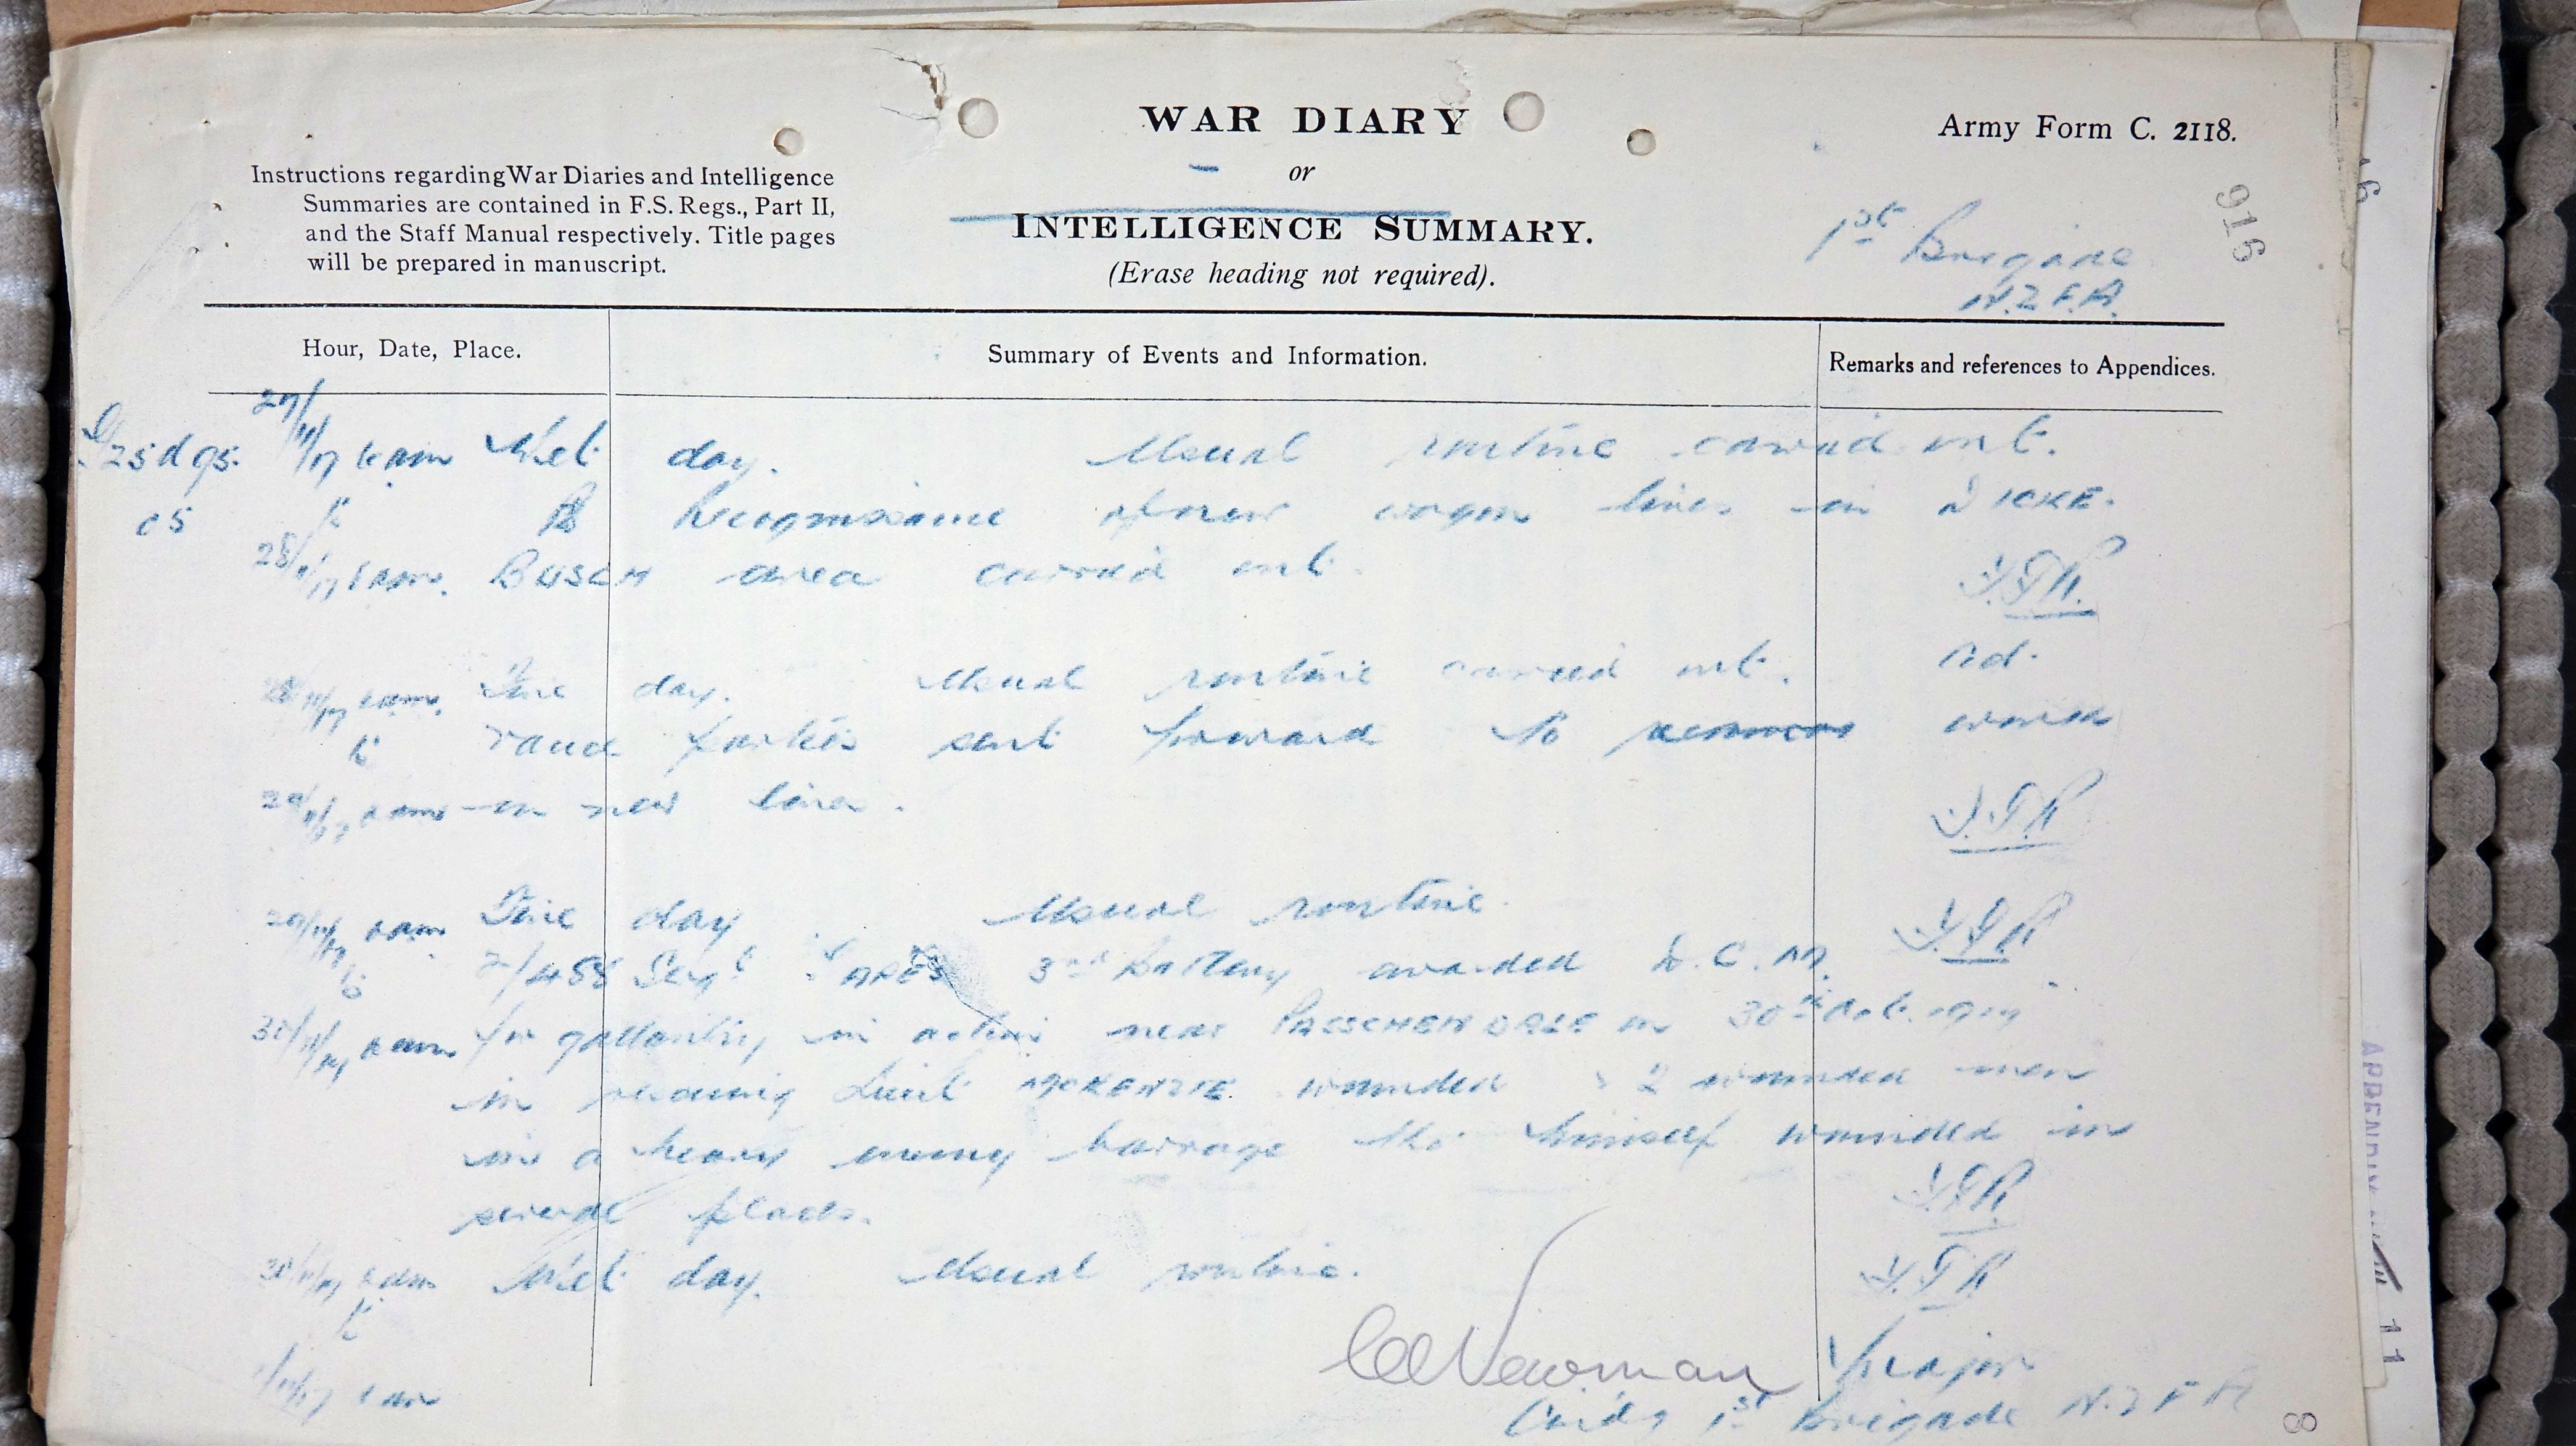 WAR DIARY
or
INTELLIGENCE SUMMARY.
(Erase heading not required).
Army Form C. 2118.
Instructions regarding War Diaries and Intelligence
Summaries are contained in F.S. Regs., Part II,
and the Staff Manual respectively. Title pages
will be prepared in manuscript.
1st Brigade
N.Z.F.A.
916
Hour, Date, Place.
Summary of Events and Information.
Remarks and references to Appendices.
27/11/17 6 am Wet day. Usual routine carried out.
to Recognisance of new wagon lines in DICKE-
28/11/17 6 am. BUSCH area carried out.
28/11/17 6 am. Fine day. Usual routine carried out. Ad-
to vance parties sent forward to work
29/11/17 6 am on new lines.
29/11/17 6 am Fine day Usual routine.
to 2/488 Sergt 3rd Battery awarded D.C.M.
30/11/17 6 am for gallantry in action near PASSCHENDALE on 30th Oct. 1917
in rescuing Lieut McKENZIE wounded & 2 wounded men
in a heavy enemy barrage tho' himself wounded in
several places.
30/11/17 6 am Wet day. Usual routine.
to
1/12/17 6 am
Newman Major
Cmdg 1st Brigade N.Z.F.A
APPENDIX
11
8